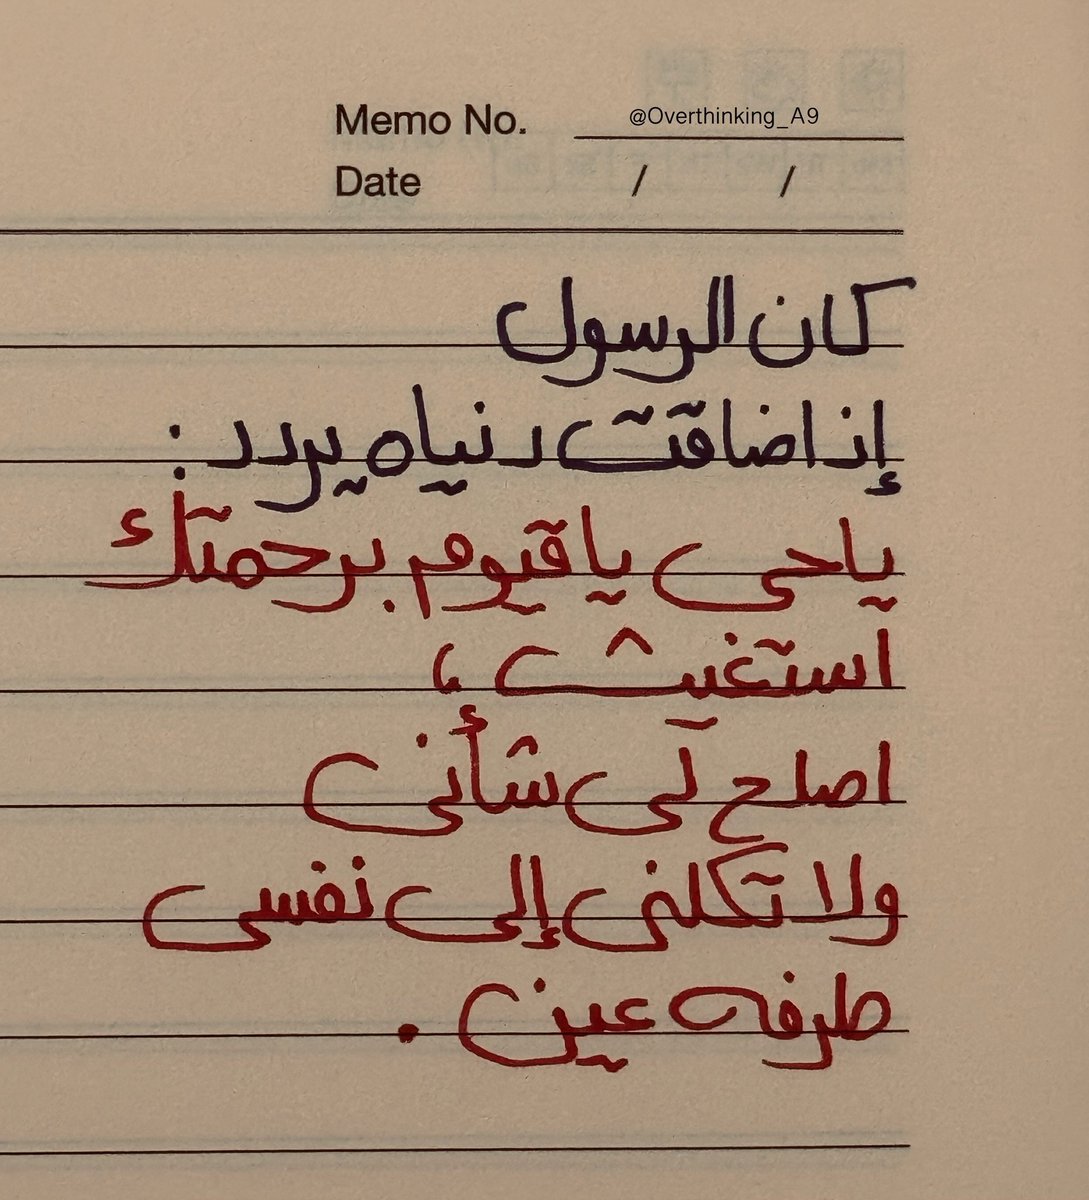 Memo No. @Overthinking_A9
Date / /
كان الرسول
إذا ضاقت دنياه يردد :
ياحي يا قيوم برحمتك
استغيث ،
اصلح لي شأني
ولا تكلني إلى نفسي
طرفه عين .